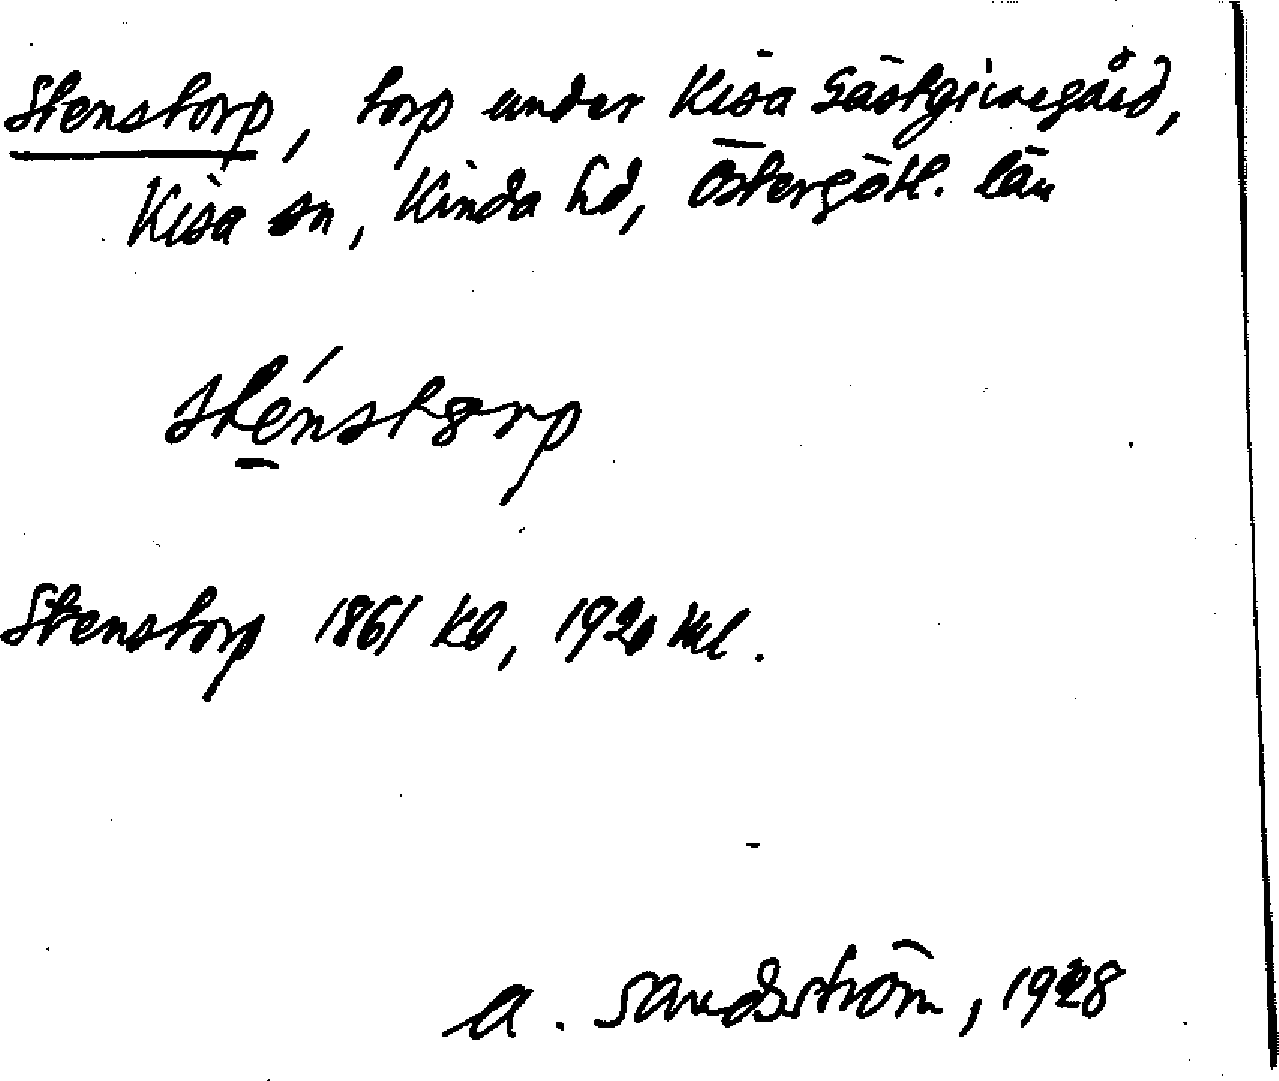 Stenstorp, torp under Kisa Gästgivaregård,
Kisa sn, Kinda hd, Östergötl. län
sténstorp
Stenstorp 1861 Kb, 1920 Ml.
A. Sandström, 1928